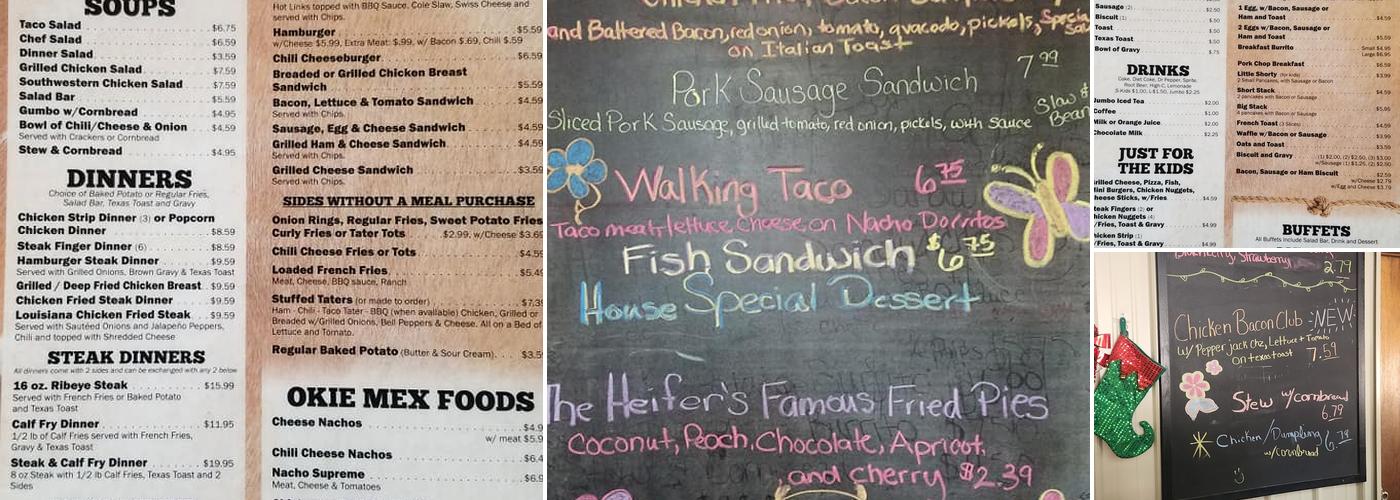 SOUPS
$6.75
Chef Salad $6.59
Dinner Salad $3.59
Grilled Chicken Salad $7.59
Southwestern Chicken Salad $7.59
Salad Bar $5.59
Gumbo w/Cornbread $4.95
Bowl of Chili/Cheese & Onion $4.59
Served with Crackers or Cornbread
Stew & Cornbread $4.95
DINNERS
Choice of Baked Potato or Regular Fries,
Salad Bar, Texas Toast and Gravy
Chicken Strip Dinner (3) or Popcorn
Chicken Dinner $8.59
Steak Finger Dinner (6) $8.59
Hamburger Steak Dinner $9.59
Served with Grilled Onions, Brown Gravy & Texas Toast
Grilled / Deep Fried Chicken Breast $9.59
Chicken Fried Steak Dinner $9.59
Louisiana Chicken Fried Steak $9.59
Served with Sautéed Onions and Jalapeño Peppers,
Chili and topped with Shredded Cheese
STEAK DINNERS
All dinners come with 2 sides and can be exchanged with any 2 below
16 oz. Ribeye Steak $15.99
Served with French Fries or Baked Potato
and Texas Toast
Calf Fry Dinner $11.95
1/2 lb of Calf Fries served with French Fries,
Gravy & Texas Toast
Steak & Calf Fry Dinner $19.95
8 oz Steak with 1/2 lb Calf Fries, Texas Toast and 2
Sides
Hot Links topped with BBQ Sauce, Cole Slaw, Swiss Cheese and
served with Chips.
Hamburger $5.59
w/Cheese $5.99, Extra Meat: $.99, w/ Bacon $.69, Chili $.59
Chili Cheeseburger $6.59
Breaded or Grilled Chicken Breast
Sandwich $5.59
Bacon, Lettuce & Tomato Sandwich $4.59
Served with Chips.
Sausage, Egg & Cheese Sandwich $4.59
Grilled Ham & Cheese Sandwich $4.59
Served with Chips.
Grilled Cheese Sandwich $3.59
Served with Chips.
SIDES WITHOUT A MEAL PURCHASE
Onion Rings, Regular Fries, Sweet Potato Fries
Curly Fries or Tater Tots $2.99, w/Cheese $3.69
Chili Cheese Fries or Tots $4.59
Loaded French Fries $5.49
Meat, Cheese, BBQ sauce, Ranch
Stuffed Taters (or made to order) $7.39
Ham - Chili - Taco Tater - BBQ (when available) Chicken, Grilled or
Breaded w/Grilled Onions, Bell Peppers & Cheese. All on a Bed of
Lettuce and Tomato.
Regular Baked Potato (Butter & Sour Cream) $3.5
OKIE MEX FOODS
Cheese Nachos $4.9
w/ meat $5.9
Chili Cheese Nachos $6.4
Nacho Supreme $6.9
Meat, Cheese & Tomatoes
and Battered Bacon, red onion, tomato, avacado, pickels, Special
on Italian Toast
Pork Sausage Sandwich 7.99
Sliced Pork Sausage, grilled tomato, red onion, pickels, with sauce
Slaw &
Bean
Walking Taco 6.75
Taco meat, lettuce cheese on Nacho Dorritos
Fish Sandwich $6.75
House Special Dessert
The Heifer's Famous Fried Pies
Coconut, Peach, Chocolate, Apricot,
, and Cherry $2.39
Sausage (2) $.50
Biscuit (1) $.50
Toast $.50
Texas Toast $.50
Bowl of Gravy $.75
DRINKS
Coke, Diet Coke, Dr Pepper, Sprite,
Root Beer, High C, Lemonade
S-Kids $1.00, L-$1.50, Jumbo $2.25
Jumbo Iced Tea $2.00
Coffee $1.00
Milk or Orange Juice $2.00
Chocolate Milk $2.25
JUST FOR
THE KIDS
Grilled Cheese, Pizza, Fish,
Mini Burgers, Chicken Nuggets,
Cheese Sticks, w/Fries $4.59
Steak Fingers (2) or
Chicken Nuggets (4)
w/Fries, Toast & Gravy $4.99
Chicken Strip (1)
w/Fries, Toast & Gravy $4.99
1 Egg, w/Bacon, Sausage or
Ham and Toast $4.59
2 Eggs w/Bacon, Sausage or
Ham and Toast $5.59
Breakfast Burrito Small $4.95
Large $6.95
Pork Chop Breakfast $6.59
Little Shorty (for kids) $3.99
2 Small Pancakes, with Sausage or Bacon
Short Stack $4.59
2 pancakes with Bacon or Sausage
Big Stack $5.59
4 pancakes with Bacon or Sausage
French Toast (3 Slices) $4.59
Waffle w/Bacon or Sausage $3.99
Oats and Toast $3.59
Biscuit and Gravy (1) $2.00, (2) $2.50, (3) $3.00
w/Sausage (1) $1.25, (2) $2.50
Bacon, Sausage or Ham Biscuit $2.59
w/Cheese $2.79
w/Egg and Cheese $3.79
BUFFETS
All Buffets Include Salad Bar, Drink and Dessert
Strawberry 2.79
Chicken Bacon Club NEW
w/ Pepper jack chz, Lettuce & Tomato
on texas toast 7.59
Stew w/ cornbread
6.79
Chicken/Dumpling 6.79
w/cornbread